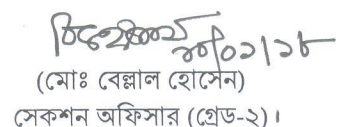 ২০/০১/১৮
(মোঃ বেল্লাল হোসেন)
সেকশন অফিসার (গ্রেড-২)।